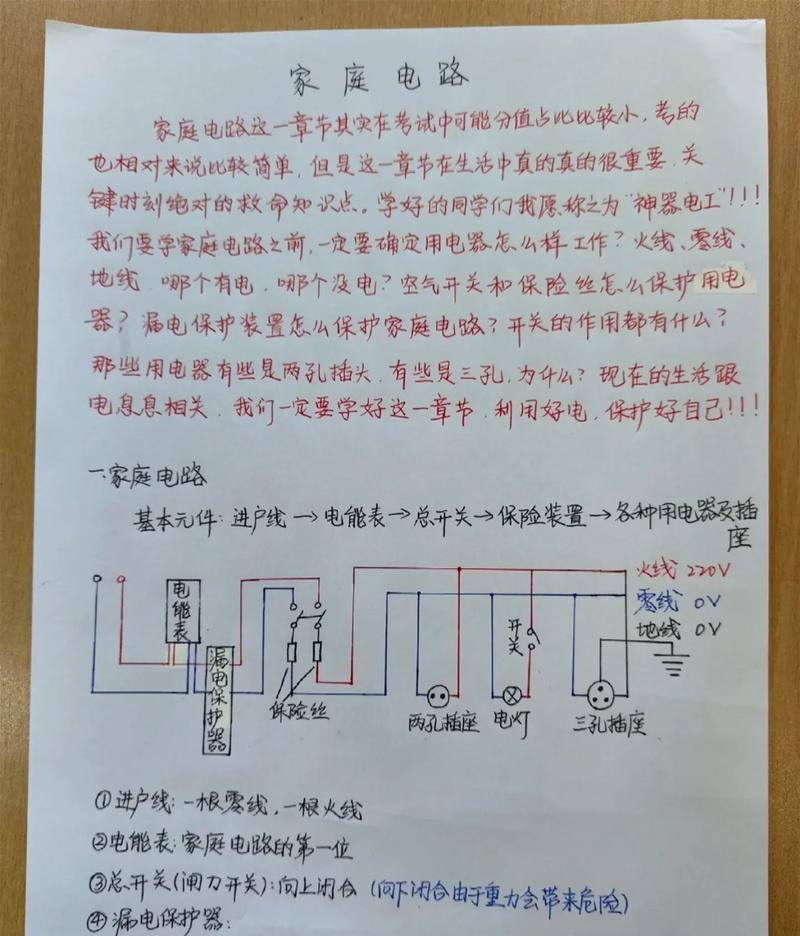 家庭电路
家庭电路这一章节其实在考试中可能分值占比比较小，考的
也相对来说比较简单，但是这一章节在生活中真的真的很重要，关
键时刻绝对的救命知识点。学好的同学们我愿称之为“神器电工”!!!
我们要学家庭电路之前，一定要确定用电器怎么样工作？火线、零线、
地线，哪个有电，哪个没电？空气开关和保险丝怎么保护用电
器？漏电保护装置怎么保护家庭电路？开关的作用都有什么？
那些用电器有些是两孔插头，有些是三孔，为什么？现在的生活跟
电息息相关，我们一定要学好这一章节，利用好电，保护好自己!!!
一、家庭电路
基本元件：进户线→电能表→总开关→保险装置→各种用电器及插
座
火线 220V
零线 0V
地线 0V
电能表
漏电保护器
保险丝
两孔插座
开关
电灯
三孔插座
①进户线：一根零线，一根火线
②电能表：家庭电路的第一位
③总开关（闸刀开关）：向上闭合（向下闭合由于重力会带来危险）
④漏电保护器：